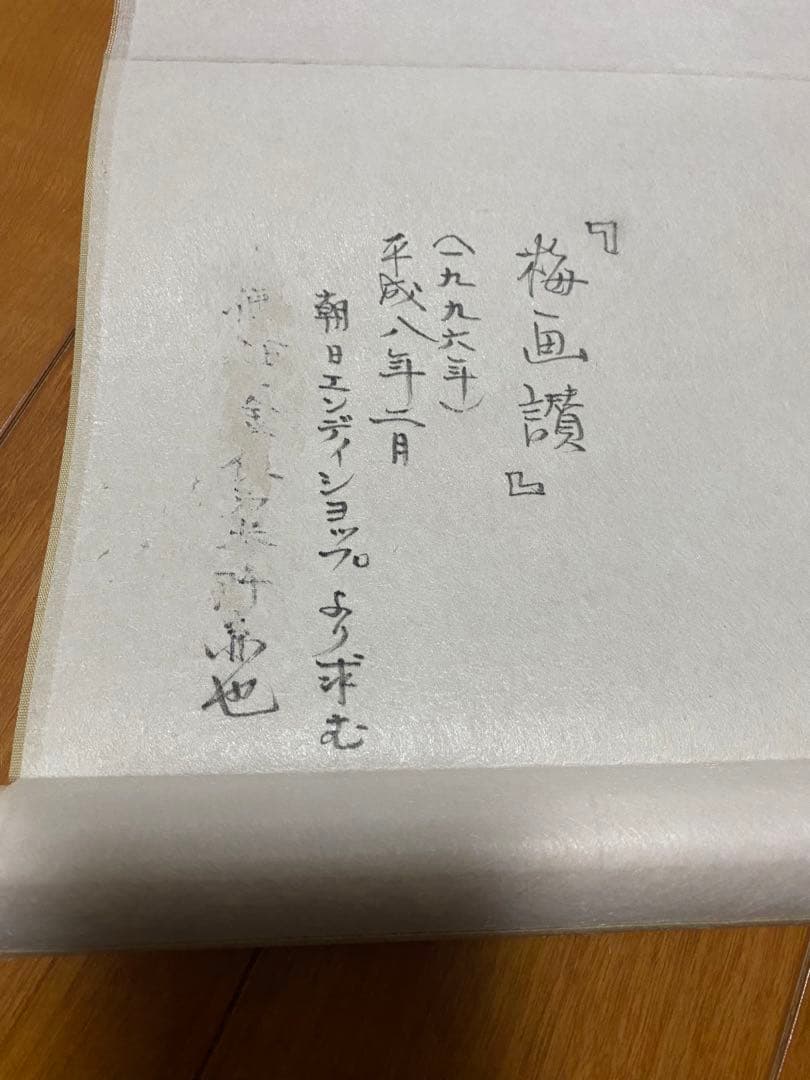 『梅画讃』
(一九九六年)
平成八年二月
朝日エンディショップより求む
也